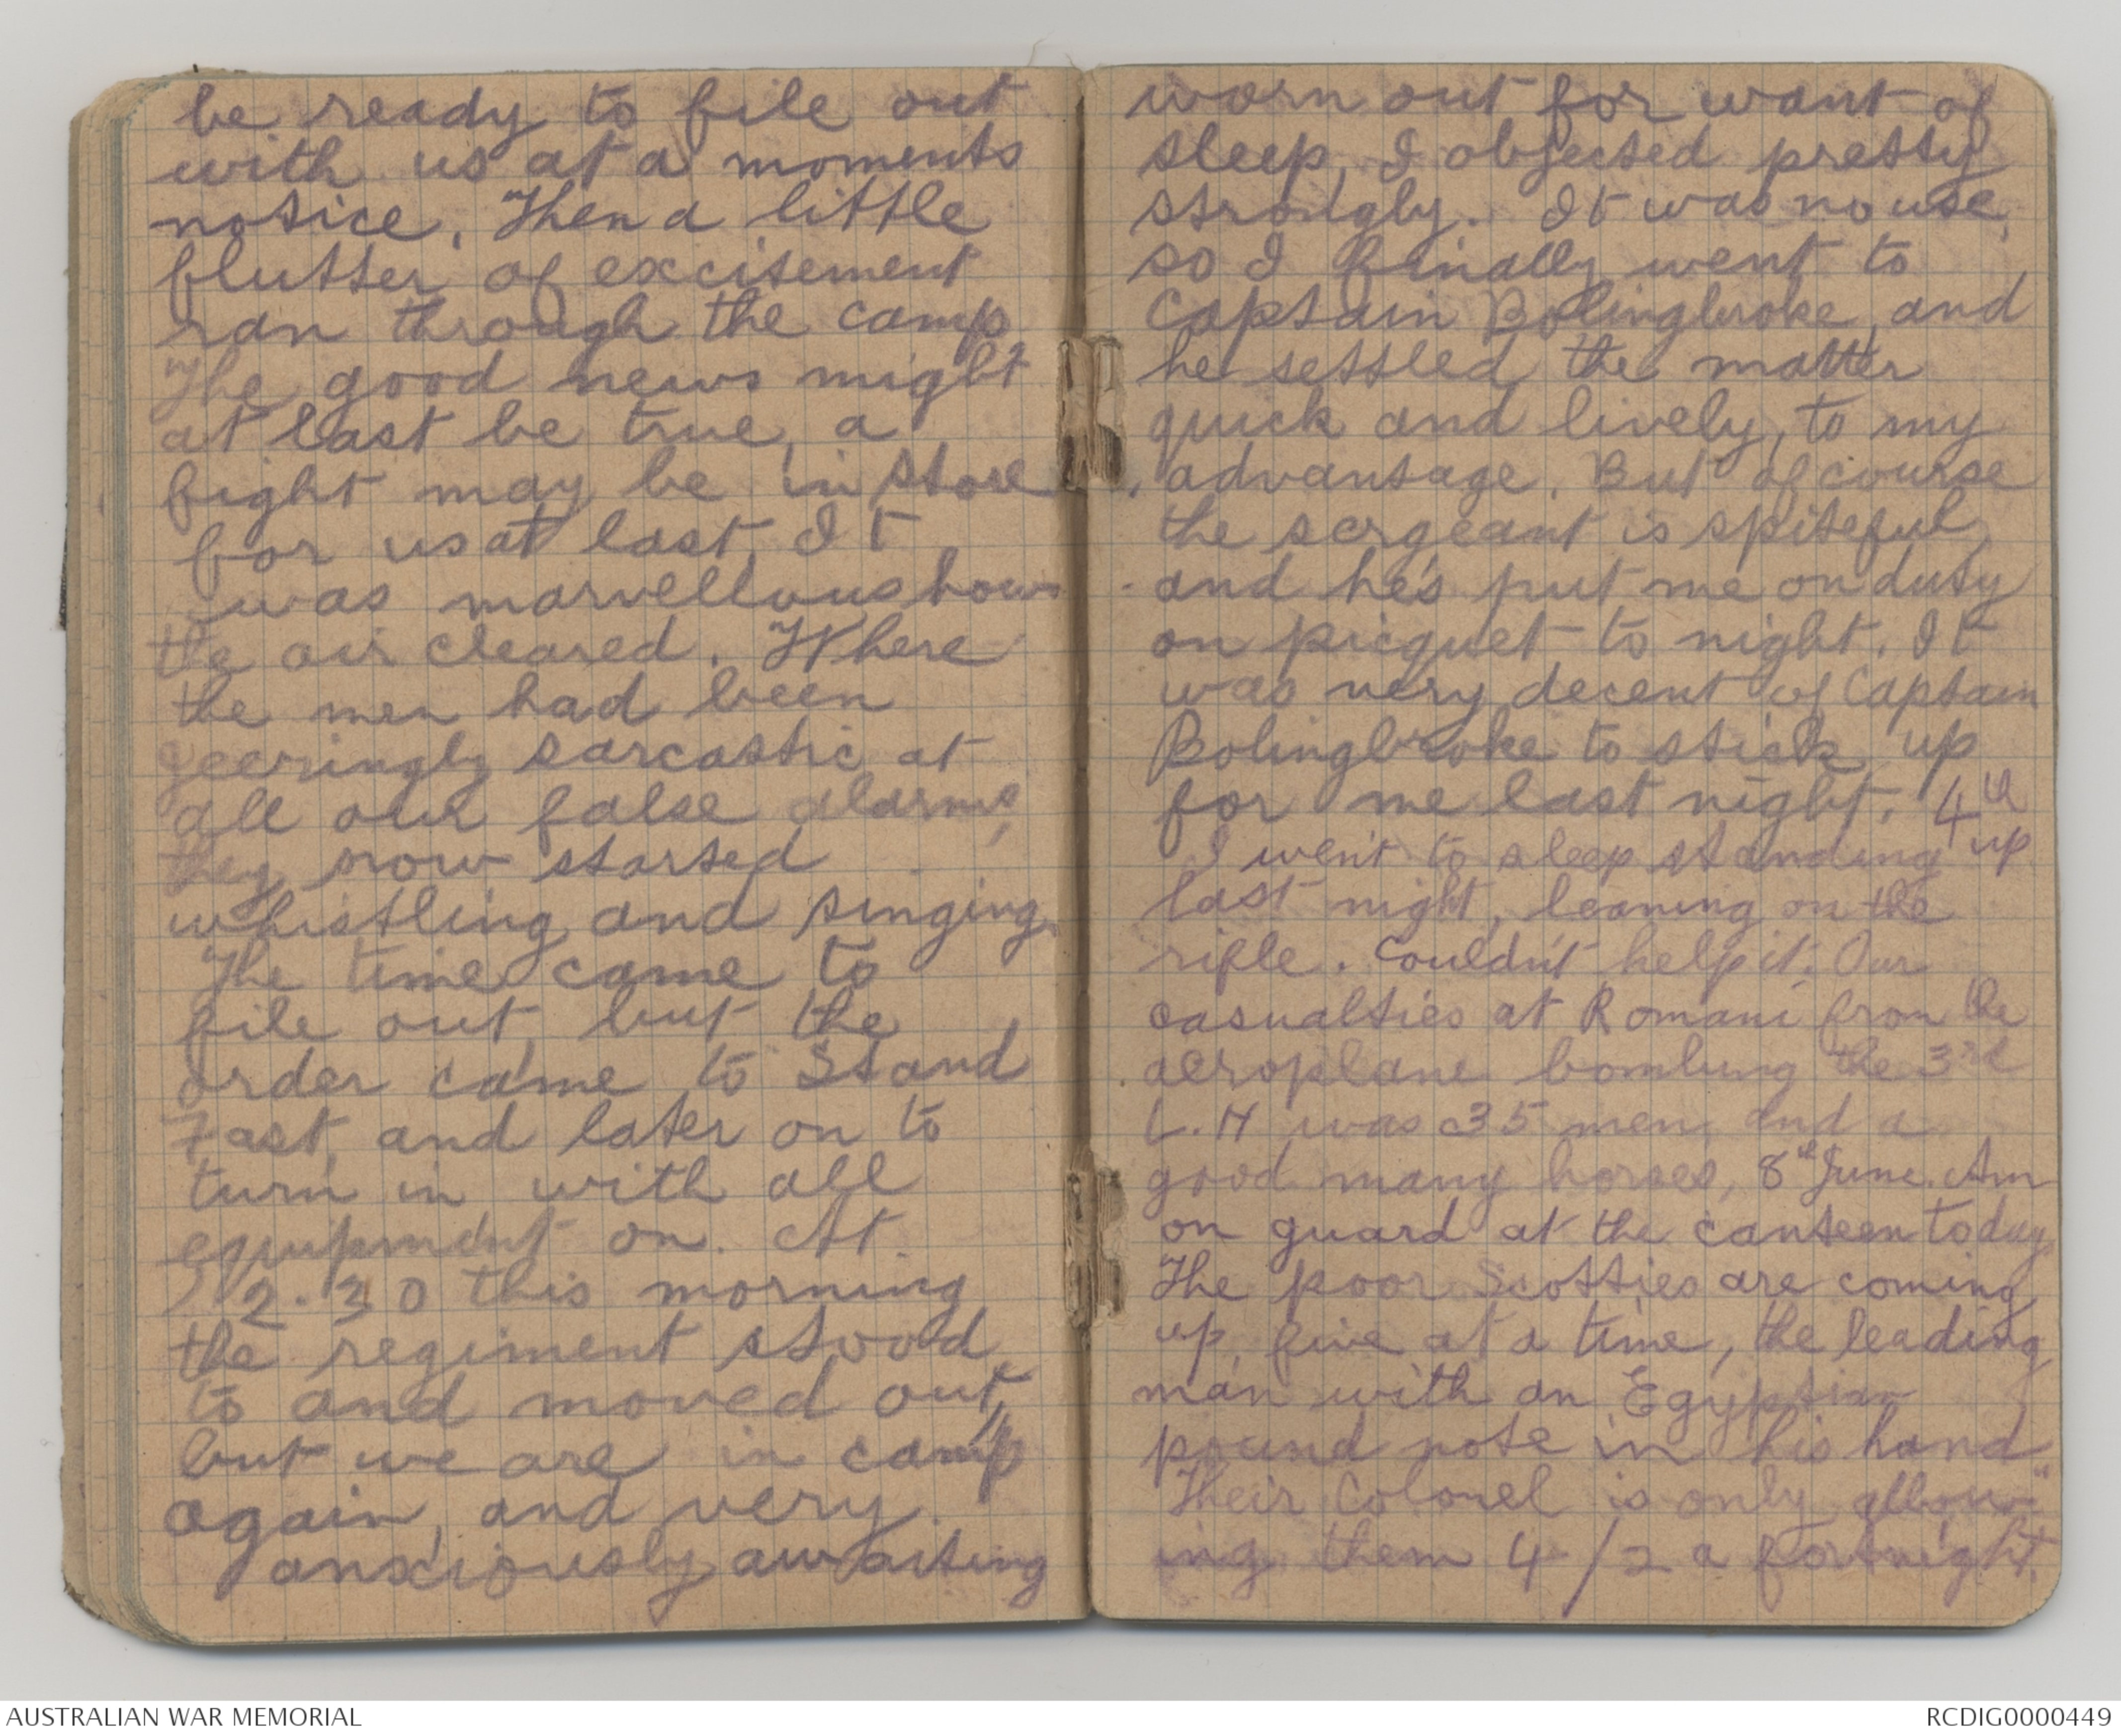 be ready to file out
with us at a moments
notice. Then a little
flutter of excitement
ran through the camp
The good news might
at last be true, a
fight may be in store
for us at last. It
was marvellous how
the air cleared. Where
the men had been
jeeringly sarcastic at
all our false alarms,
they now started
whistling and singing.
The time came to
file out, but the
order came to Stand
Fast, and later on to
turn in with all
equipment on. At
2.30 this morning
the regiment stood
to and moved out,
but we are in camp
again, and very
anxiously awaiting
worn out for want of
sleep, I objected pretty
strongly. It was no use,
so I finally went to
Captain Bolingbroke, and
he settled the matter
quick and lively, to my
advantage. But of course
the sergeant is spiteful,
and he's put me on duty
on picquet to night. It
was very decent of Captain
Bolingbroke to stick up
for me last night. 4th
I went to sleep standing up
last night, leaning on the
rifle. Couldn't help it. Our
casualties at Romani from the
aeroplane bombing the 3rd
L.H was 35 men, and a
good many horses, 8th June. Am
on guard at the canteen today.
The poor Scotties are coming
up, five at a time, the leading
man with an Egyptian
pound note in his hand
Their Colonel is only allow-
ing them 4/2 a fortnight.
AUSTRALIAN WAR MEMORIAL
RCDIG0000449